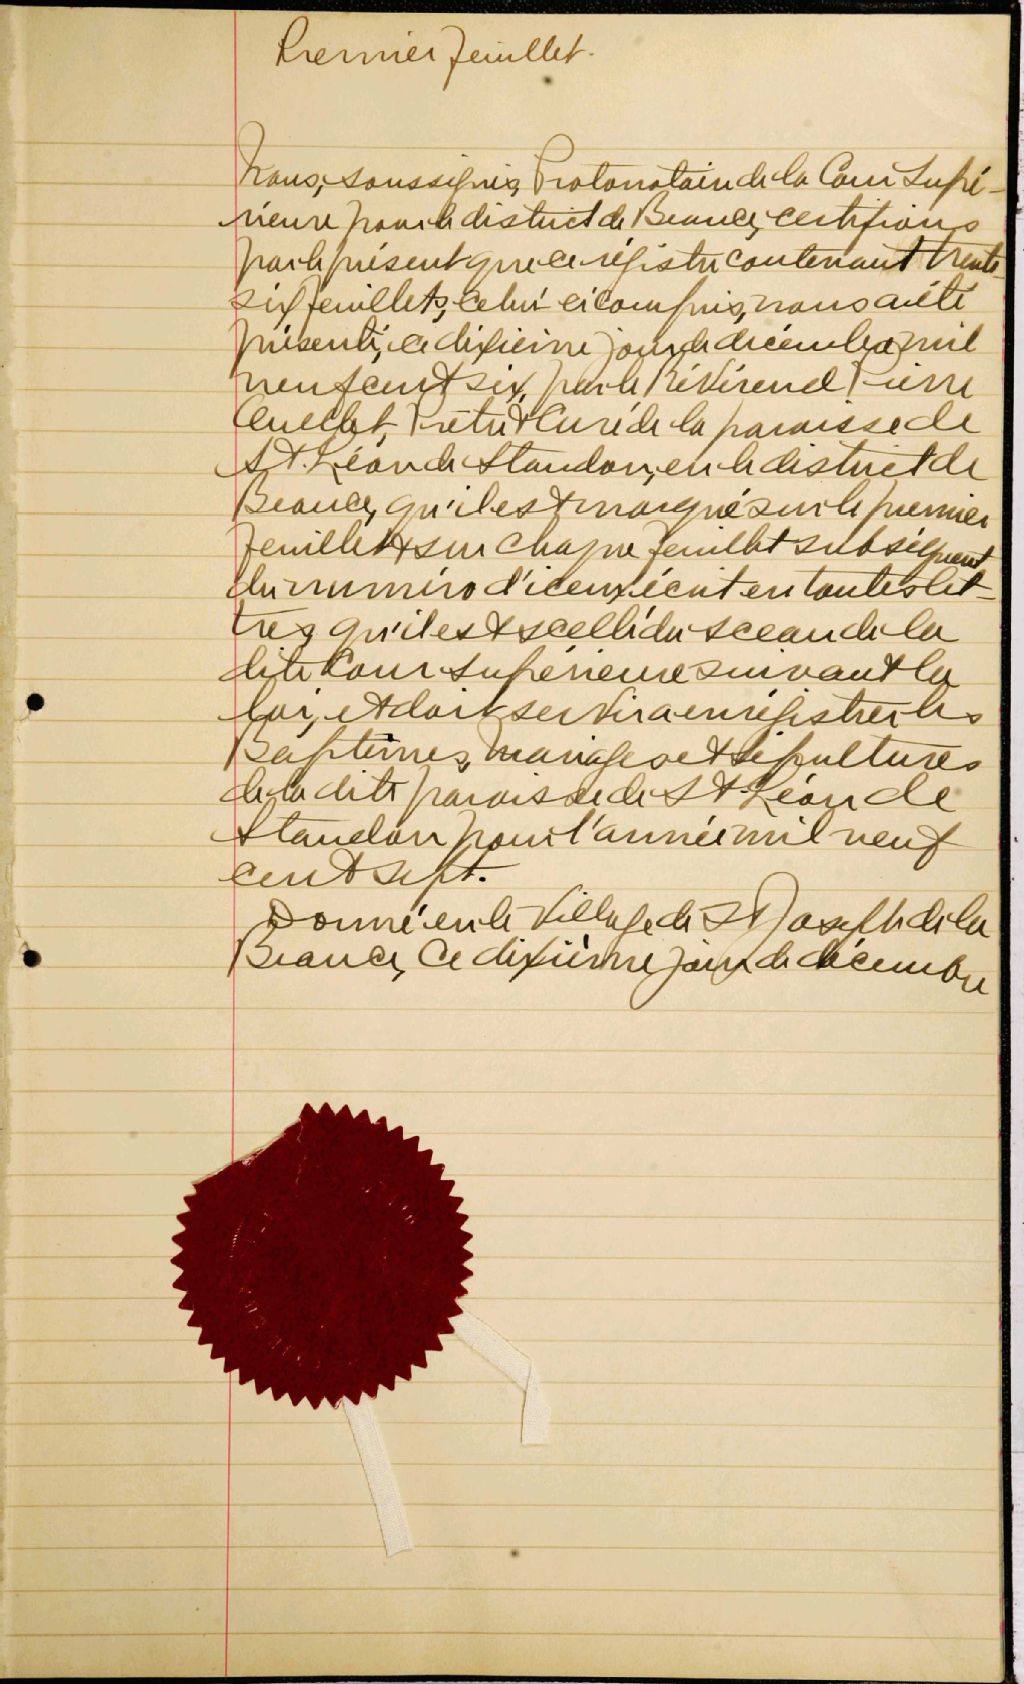 Premier feuillet.
Nous, soussignés, Protonotaire de la Cour Supé-
rieure pour le district de Beauce, certifions
par le présent que ce régistre contenant trente-
six feuillets, celui ci compris, nous a été
présenté, ce dixième jour de décembre mil
neuf cent six, par le Révérend Pierre
Ouellet, Prêtre & Curé de la paroisse de
St. Léon de Standon, en le district de
Beauce, qu'il est marqué sur le premier
feuillet & sur chaque feuillet subséquent
du numéro d'iceux écrit en toutes let-
tres, qu'il est scellé du sceau de la
dite Cour Supérieure suivant la
loi, et doit servir a enrégistrer les
Baptêmes, Mariages et sépultures
de la dite paroisse de St. Léon de
Standon pour l'année mil neuf
cent sept.
Donné en le Village de St Joseph de la
Beauce, Ce dixième jour de décembre